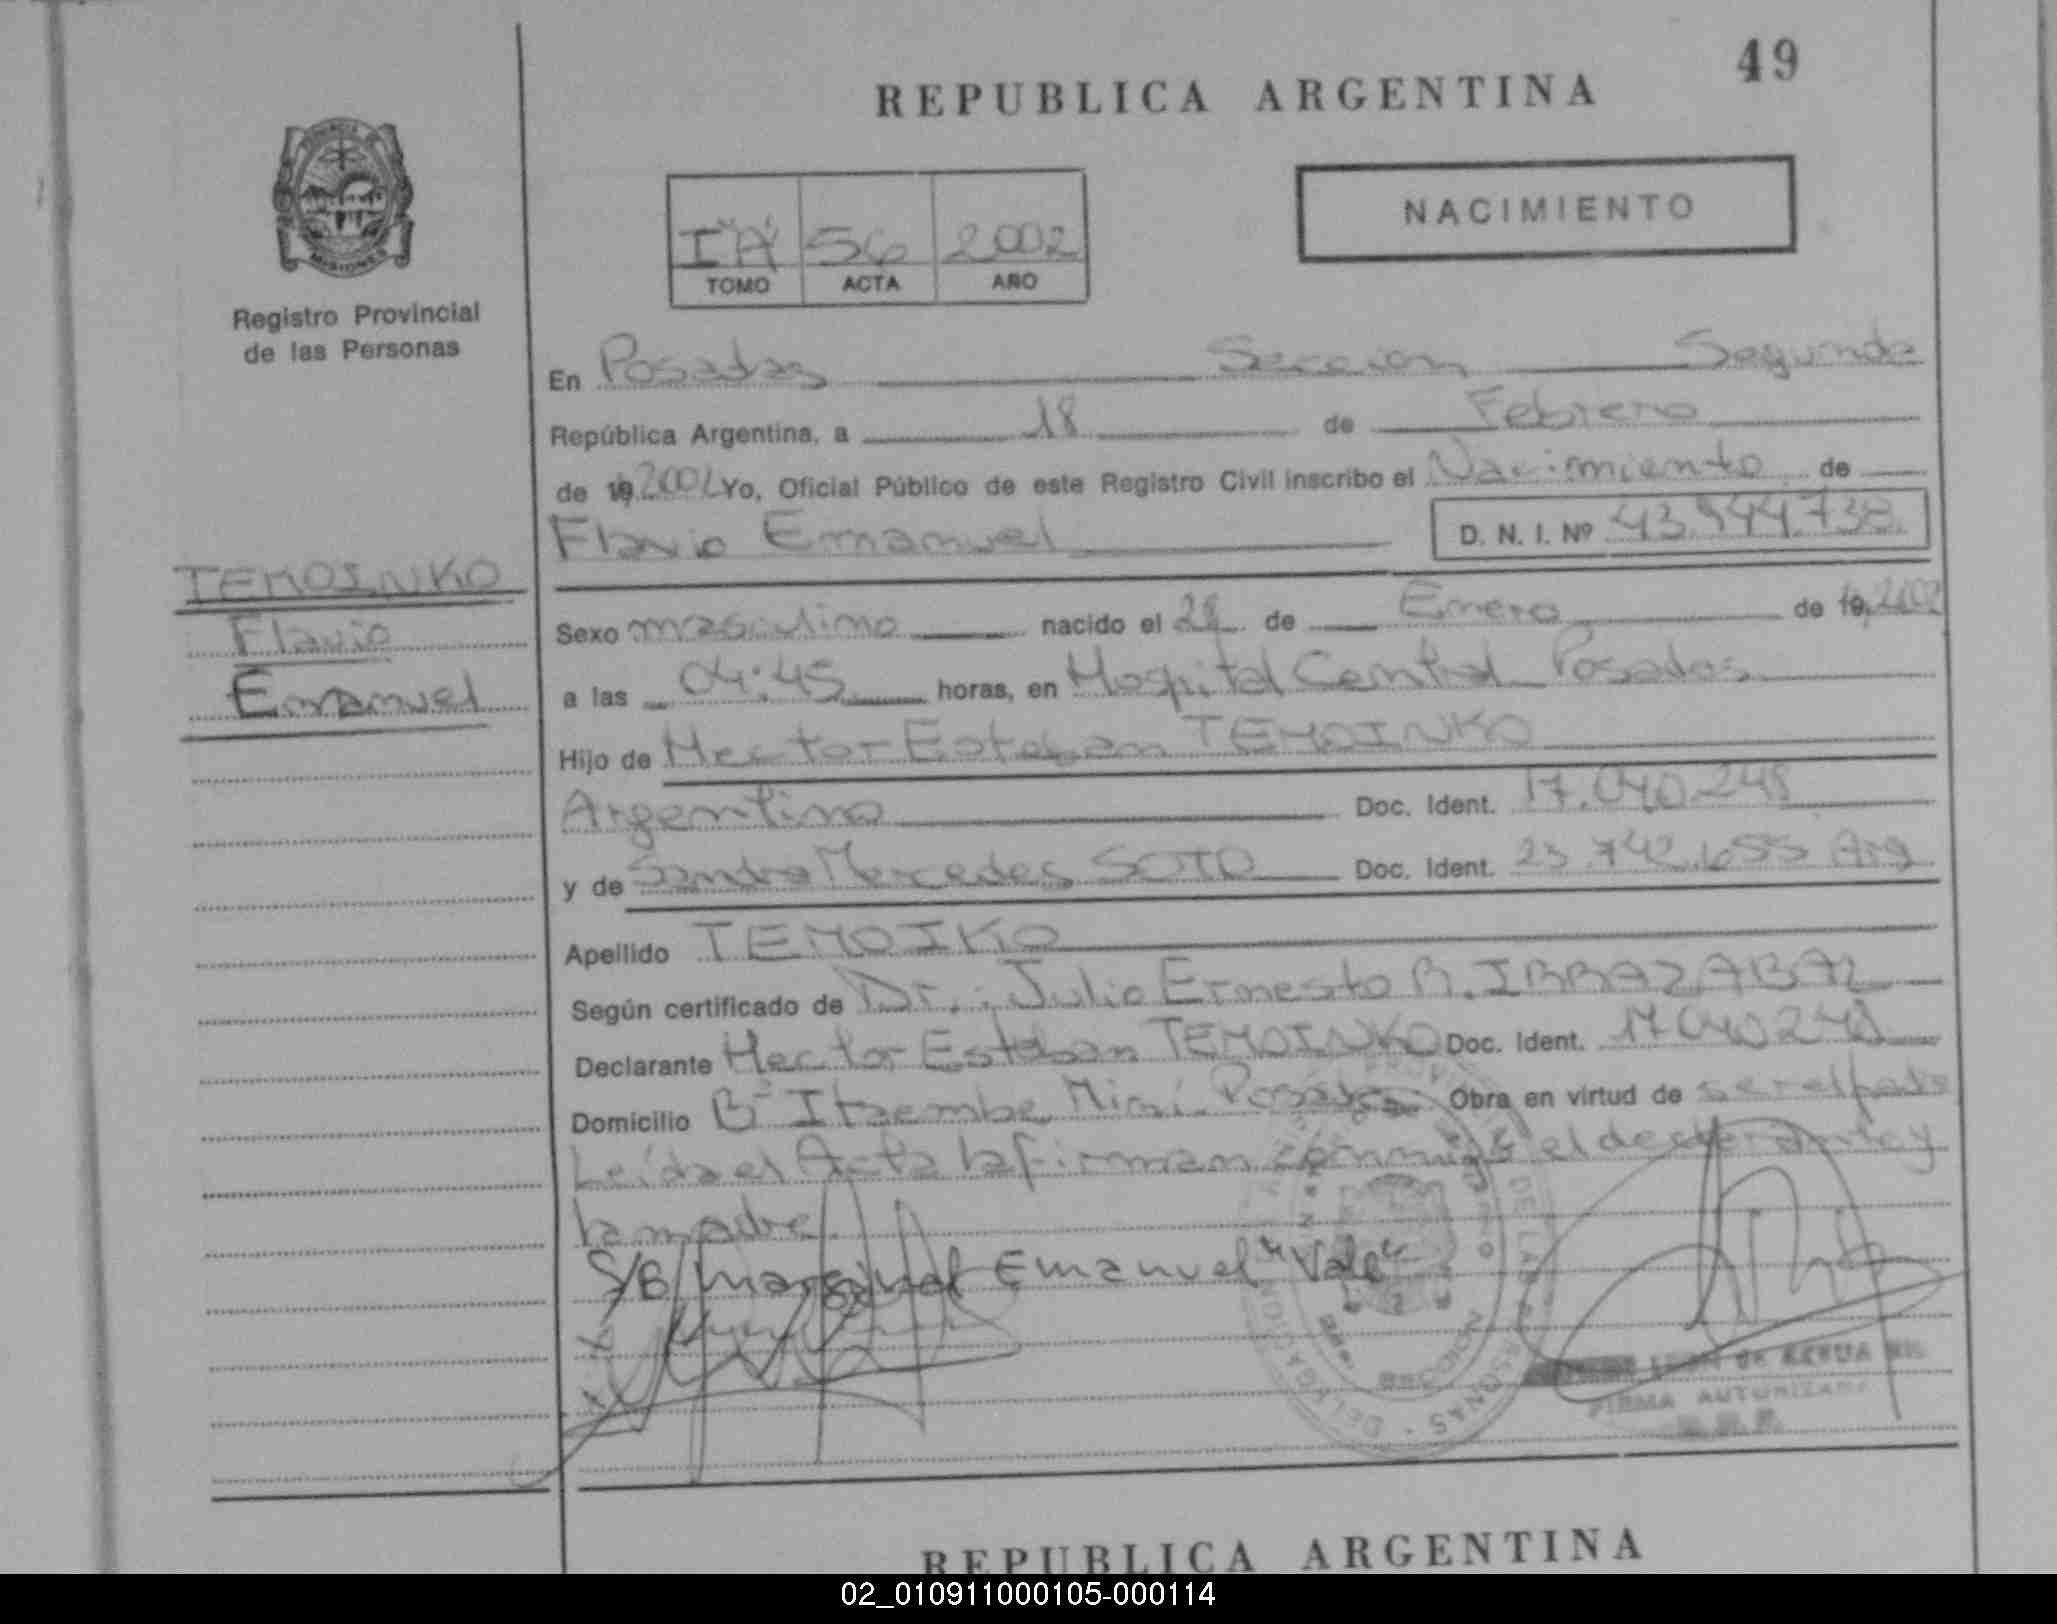 49
REPUBLICA ARGENTINA
NACIMIENTO
I "A" 56 2002
TOMO ACTA AÑO
MISIONES
Registro Provincial
de las Personas
En Posadas Seccion Segunda
República Argentina, a 18 de Febrero
de 19 2002 Yo, Oficial Público de este Registro Civil inscribo el Nacimiento de
Flavio Emanuel D. N. I. Nº 43.944.738
TEMOINKO
Flavio
Emanuel
Sexo masculino nacido el 28 de Enero de 19 2002
a las 04:45 horas, en Hospital Central Posadas
Hijo de Hector Esteban TEMOINKO
Argentino Doc. Ident. 17.040.248
y de Sandra Mercedes SOTO Doc. Ident. 23.742.655 Arg
Apellido TEMOIKO
Según certificado de Dr.: Julio Ernesto R. IRRAZABAL
Declarante Hector Esteban TEMOINKO Doc. Ident. 17040248
Domicilio Bº Itaembe Mini Posadas Obra en virtud de ser el padre
Leída el Acta la firman conmigo el declarante y
la madre.
S/B marginal Emanuel "Vale"
LEON de
FIRMA AUTORIZADA
REPUBLICA ARGENTINA
02_010911000105-000114